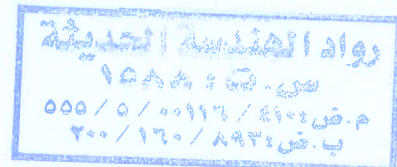 رواد الهندسة الحديثة
س.ت: ١٥٨٨
م.ض: ٤١٠/٠٠١١٦/٥/٥٥٥
ب.ض: ٨٩٣/١٦٠/٢٠٠